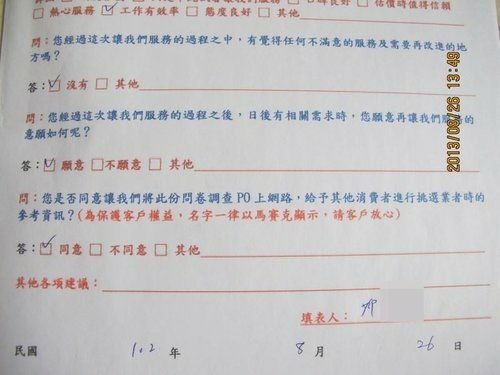 □熱心服務 ☑工作有效率 □態度良好 □其他
問：您經過這次讓我們服務的過程之中，有覺得任何不滿意的服務及需要再改進的地
方嗎？
答：☑沒有 □其他
問：您經過這次讓我們服務的過程之後，日後有相關需求時，您願意再讓我們服務的
意願如何呢？
答：☑願意 □不願意 □其他
問：您是否同意讓我們將此份問卷調查PO上網路，給予其他消費者進行挑選業者時的
參考資訊？(為保護客戶權益，名字一律以馬賽克顯示，請客戶放心)
答：☑同意 □不同意 □其他
其他各項建議：
填表人：
民國 102 年 8 月 26 日
2013/08/26 13:49